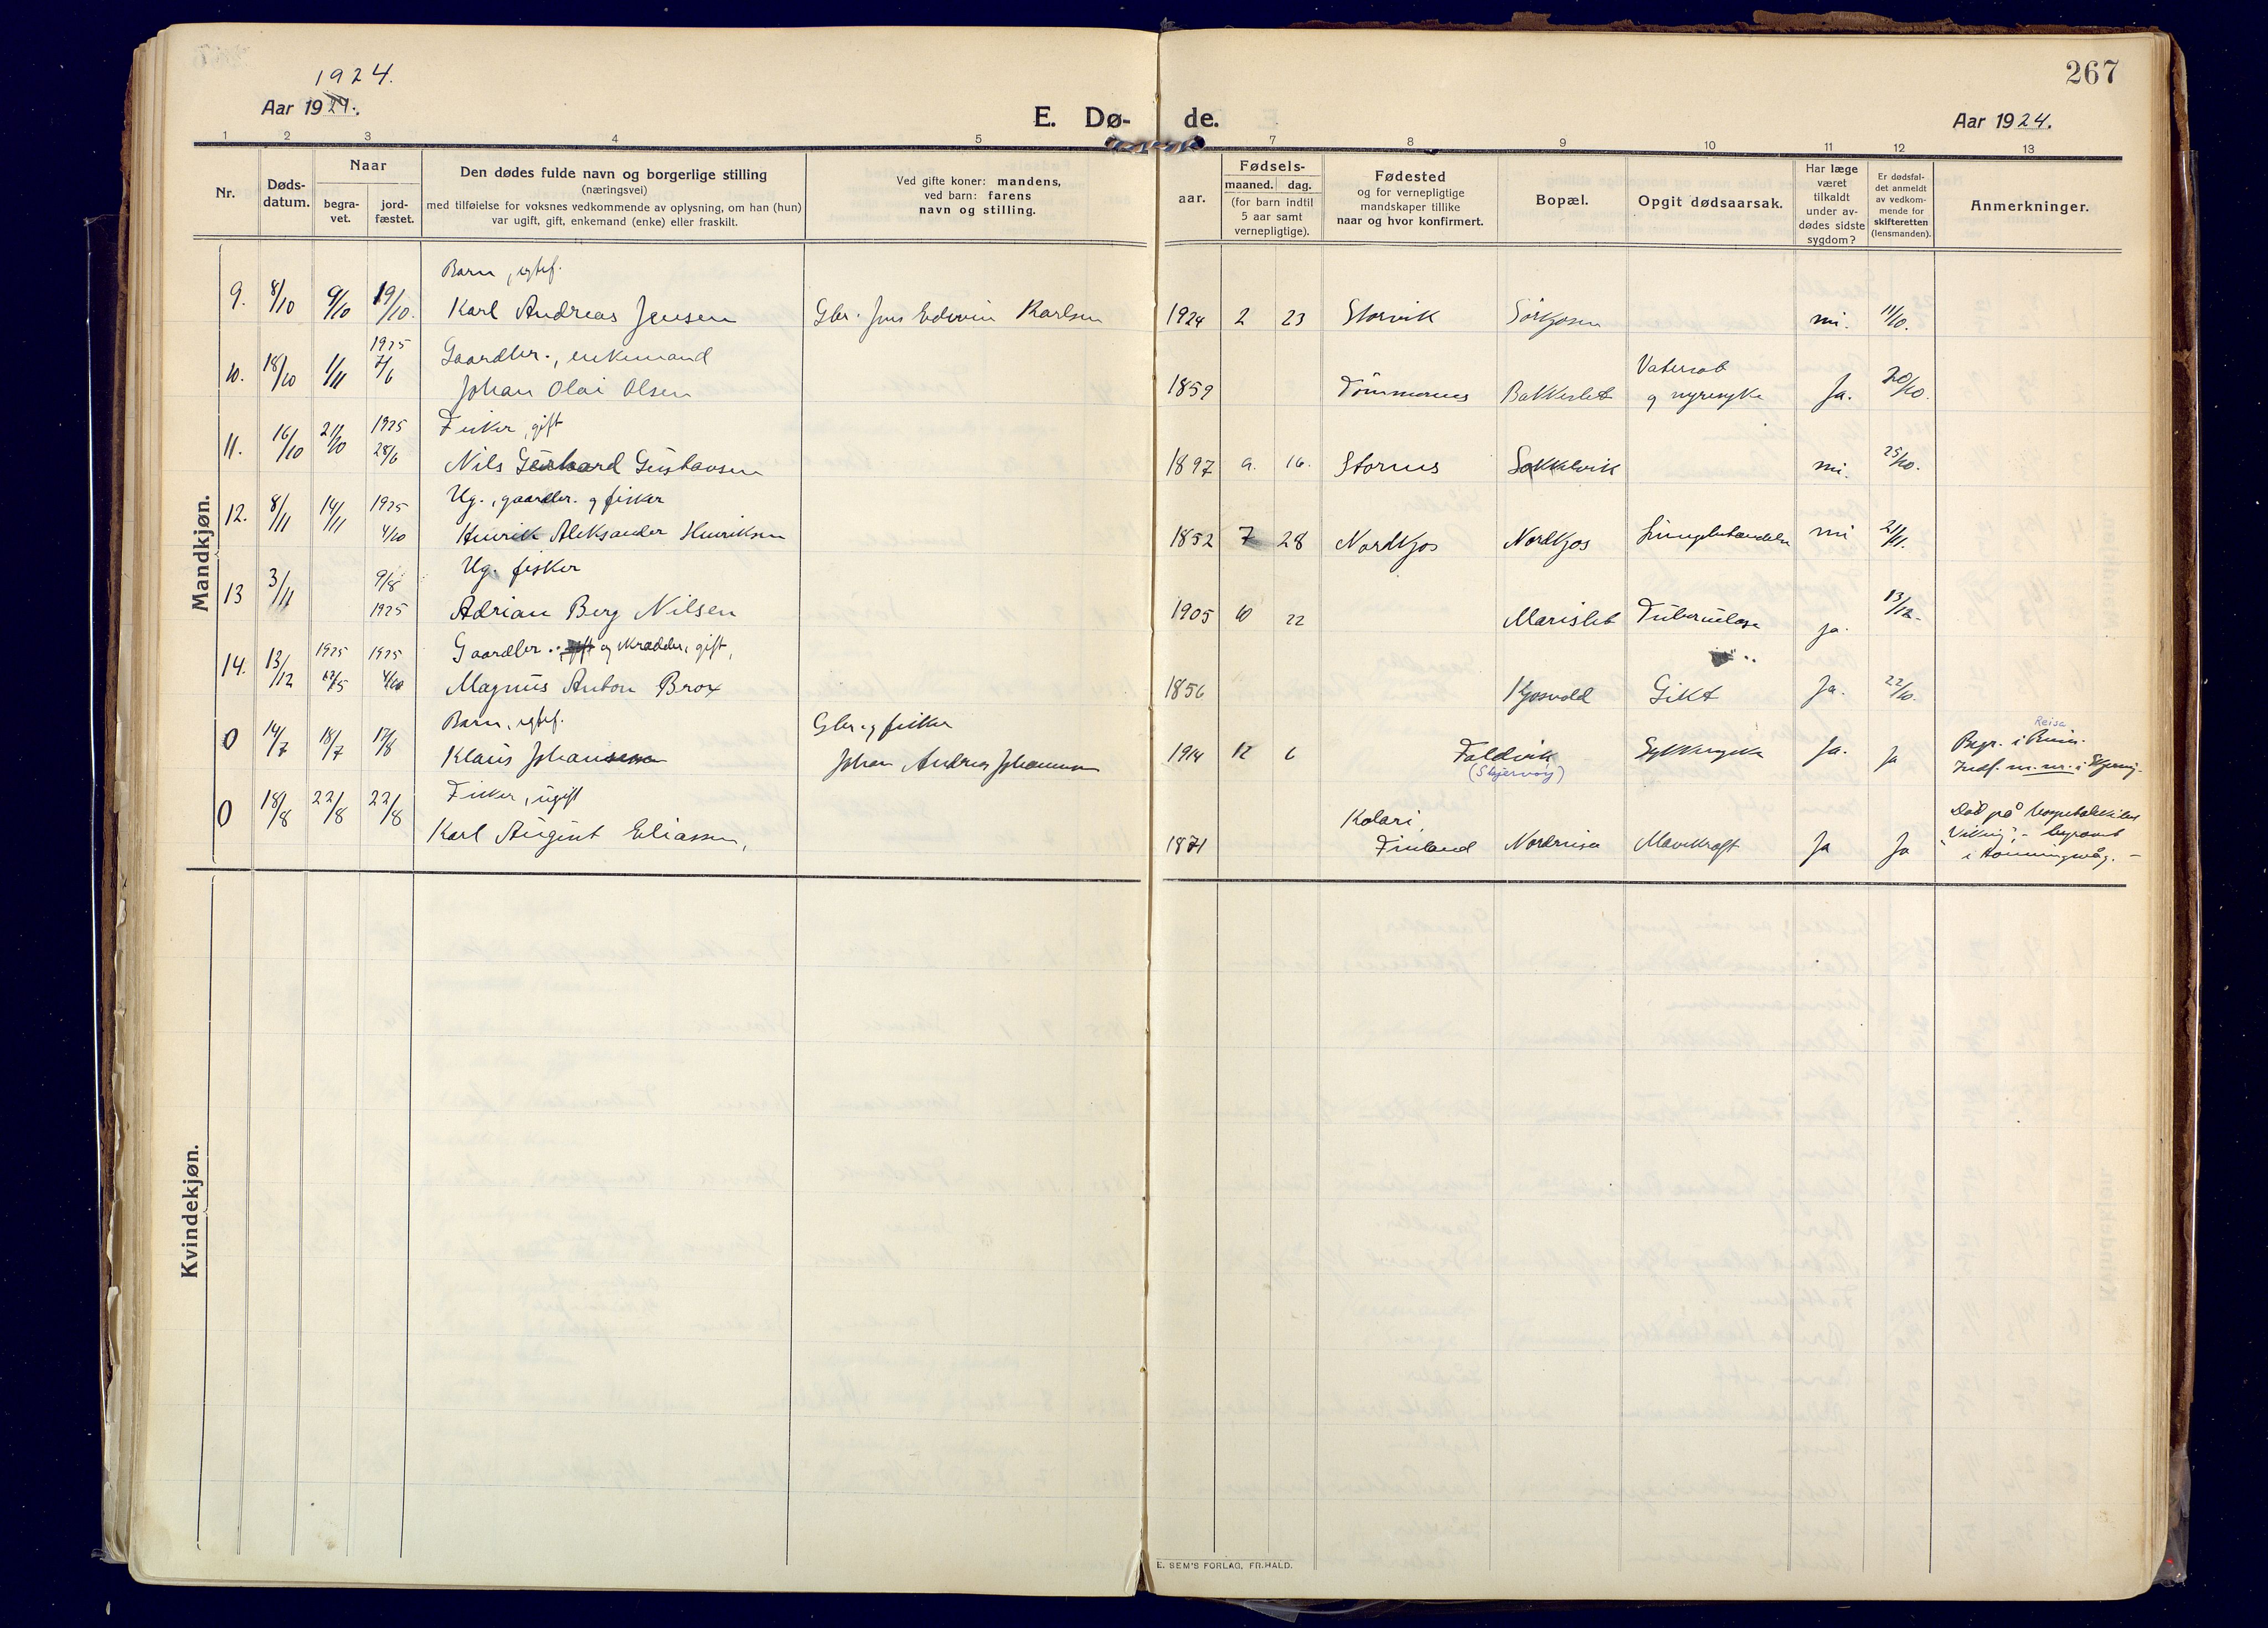 1924.
Aar 1924.
E. Dø-
de.
267
Aar 1924.
1 2 3 4 5 7 8 9 10 11 12 13
Nr.
Døds-
datum.
Naar
begra-
vet.
jord-
fæstet.
Den dødes fulde navn og borgerlige stilling
(næringsvei)
med tilføielse for voksnes vedkommende av oplysning, om han (hun)
var ugift, gift, enkemand (enke) eller fraskilt.
Ved gifte koner: mandens,
ved barn: farens
navn og stilling.
aar.
Fødsels-
maaned. dag.
(for barn indtil
5 aar samt
vernepligtige).
Fødested
og for vernepligtige
mandskaper tillike
naar og hvor konfirmert.
Bopæl.
Opgit dødsaarsak.
Har læge
været
tilkaldt
under av-
dødes sidste
sygdom?
Er dødsfal-
det anmeldt
av vedkom-
mende for
skifteretten
(lensmanden).
Anmerkninger.
Mandkjøn.
Barn, egtef.
9. 8/10 9/10 19/10. Karl Andreas Jensen Gbr. Jens Edvin Karlsen 1924 2 23 Storvik Sörkjosen nei. 11/10.
1925
Gaardbr., enkemand
10. 18/10 1/11 7/6 Johan Olai Olsen 1859 Tömmernes Bakkeslet Vatersot
og nyresyke Ja. 20/10.
1925 Fisker, gift
11. 16/10 21/10 28/6 Nils Gerhard Gustavsen 1897 9. 16. Stornes Sokkelvik nei. 25/10.
1925 Ug., gaardbr. og fisker
12. 8/11 14/11 4/10 Henrik Aleksander Henriksen 1852 7 28 Nordkjos Nordkjos Lungebetændelse nei 21/11.
Ug. fisker
13 3/11 9/8
1925 Adrian Berg Nilsen 1905 10 22 Marislet Tuberculose ja. 13/12.
1925 1925 Gaardbr. gift og skrædder, gift,
14. 13/12 12/5 4/10 Magnus Anton Brox 1856 Kjosvold Gikt Ja. 22/10.
Barn, egtef. Gbr. og fisker
0 14/7 18/7 17/8 Klaus Johansen Johan Andreas Johannesen 1914 12 6 Foldvik
(Skjervøy) Sukkersyke Ja. ja Reisa
Begr. i
Indf. m. nr. i Skjervøy.
Fisker, ugift
0 18/8 22/8 22/8 Karl August Eliassen, 1871 Kolari,
Finland Nordreisa Mavekræft Ja Ja Död på hospitalskibet
"Viking", - begravet
i Honningsvåg. -
Kvindekjøn.
E. SEM'S FORLAG, FR.HALD.